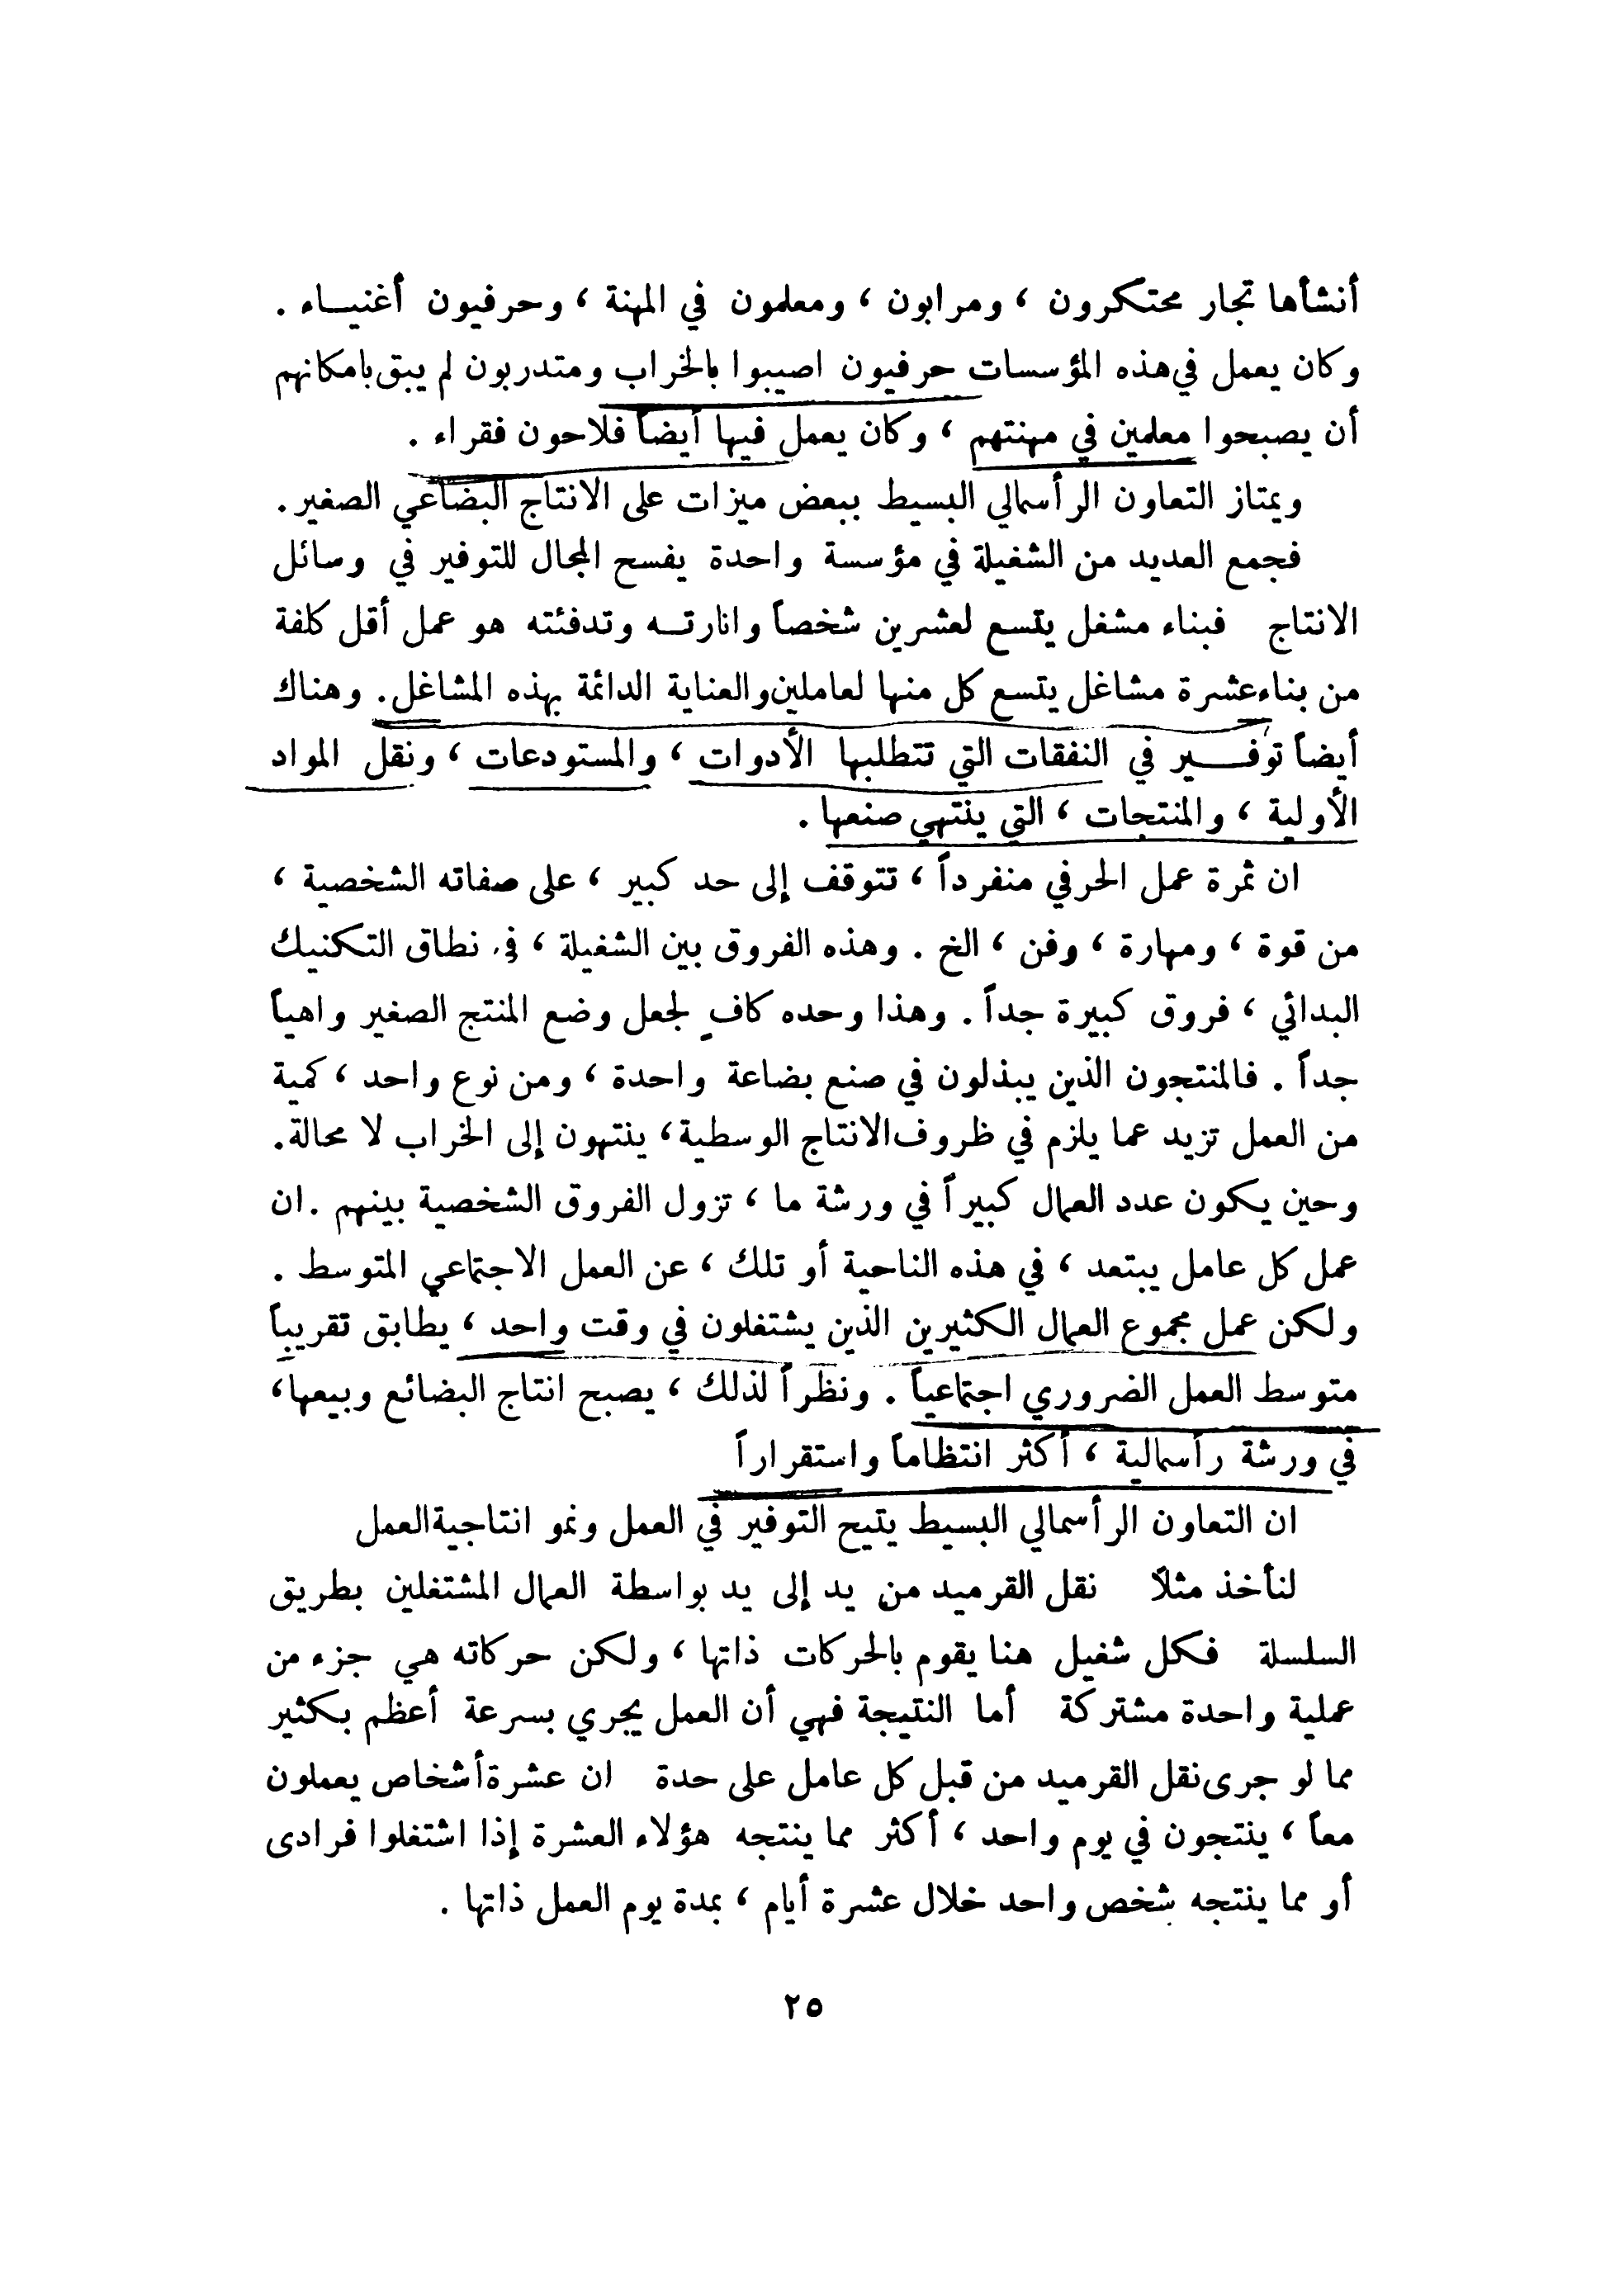 أنشأها تجار محتكرون ، ومرابون ، ومعلمون في المهنة ، وحرفيون أغنيـــاء .
وكان يعمل في هذه المؤسسات حرفيون اصيبوا بالخراب ومتدربون لم يبق بامكانهم
أن يصبحوا معلمين في مهنتهم ، وكان يعمل فيها أيضاً فلاحون فقراء .
ويمتاز التعاون الرأسمالي البسيط ببعض ميزات على الانتاج البضاعي الصغير .
فجمع العديد من الشغيلة في مؤسسة واحدة يفسح المجال للتوفير في وسائل
الانتاج فبناء مشغل يتسع لعشرين شخصاً وانارتــه وتدفئته هو عمل أقل كلفة
من بناء عشرة مشاغل يتسع كل منها لعاملين والعناية الدائمة بهذه المشاغل . وهناك
أيضاً توفــــير في النفقات التي تتطلبها الأدوات ، والمستودعات ، ونقل المواد
الأولية ، والمنتجات ، التي ينتهي صنعها .
ان ثمرة عمل الحرفي منفرداً ، تتوقف إلى حد كبير ، على صفاته الشخصية ،
من قوة ، ومهارة ، وفن ، الخ . وهذه الفروق بين الشغيلة ، في نطاق التكنيك
البدائي ، فروق كبيرة جداً . وهذا وحده كافٍ لجعل وضع المنتج الصغير واهياً
جداً . فالمنتجون الذين يبذلون في صنع بضاعة واحدة ، ومن نوع واحد ، كمية
من العمل تزيد عما يلزم في ظروف الانتاج الوسطية ، ينتهون إلى الخراب لا محالة .
وحين يكون عدد العمال كبيراً في ورشة ما ، تزول الفروق الشخصية بينهم . ان
عمل كل عامل يبتعد ، في هذه الناحية أو تلك ، عن العمل الاجتماعي المتوسط .
ولكن عمل مجموع العمال الكثيرين الذين يشتغلون في وقت واحد ، يطابق تقريباً
متوسط العمل الضروري اجتماعياً . ونظراً لذلك ، يصبح انتاج البضائع وبيعها ،
في ورشة رأسمالية ، أكثر انتظاماً واستقراراً
ان التعاون الرأسمالي البسيط يتيح التوفير في العمل ونمو انتاجية العمل
لنأخذ مثلاً نقل القرميد من يد إلى يد بواسطة العمال المشتغلين بطريق
السلسلة فكل شغيل هنا يقوم بالحركات ذاتها ، ولكن حركاته هي جزء من
عملية واحدة مشتركة أما النتيجة فهي أن العمل يجري بسرعة أعظم بكثير
مما لو جرى نقل القرميد من قبل كل عامل على حدة ان عشرة أشخاص يعملون
معاً ، ينتجون في يوم واحد ، أكثر مما ينتجه هؤلاء العشرة إذا اشتغلوا فرادى
أو مما ينتجه شخص واحد خلال عشرة أيام ، بمدة يوم العمل ذاتها .
٢٥